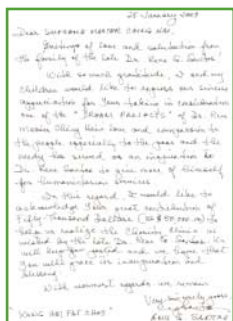 28 January 2009
Dear SUPREME MASTER CHING HAI,
Greetings of love and salutation from
the family of the late Dr. Rene G. Santos!
With so much gratitude, I and my
children would like to express our sincere
appreciation for your taking in consideration
one of the "PROJECTS" of Dr. Rene
Master Ching Hai's love and compassion to
the people especially to the poor and the
needy has served as an inspiration to
Dr. Rene Santos to give more of himself
for humanitarian services
In this regard, I would like to
acknowledge your great contribution of
Fifty Thousand Dollars (US $50,000.00) to
help us realize the Charity Clinic as
by the late Dr. Rene G. Santos. We
will keep you posted and we hope that
you will grace its inauguration and
blessing
With warmest regards we remain
Very sincerely yours
"KUNG HEI FAT CHOY"